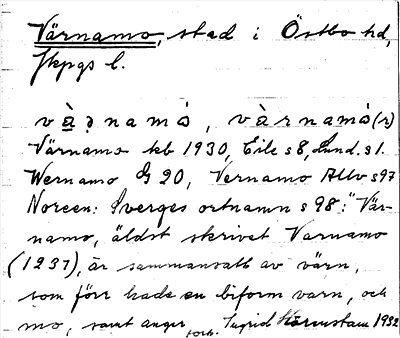 Värnamo, stad i Östbo hd,
Jkpgs l.
vàṇnamó, vàrnamó(r)
Värnamo kb 1930, Eile s8, Lund. s1.
Wernamo G 20, Vernamo Allv s97
Noreen: Sverges ortnamn s 98: "Vär-
namo, äldst skrivet Varnamo
(1237), är sammansatt av värn,
som förr hade en biform varn, och
mo, samt anger, Ingrid 1932